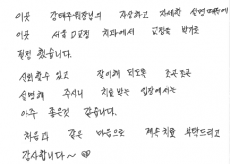 이웃 김태주원장님의 자상하고 자세한 설명때문에
이웃 서울교정 치과에서 교정을 받기로
결정 했습니다.
신뢰할수 있고 잘이해 되도록 조근조근
설명해 주시니 치료 받는 입장에서는
아주 좋은것 같습니다.
처음과 같은 마음으로 계속치료 부탁드리고
감사합니다~